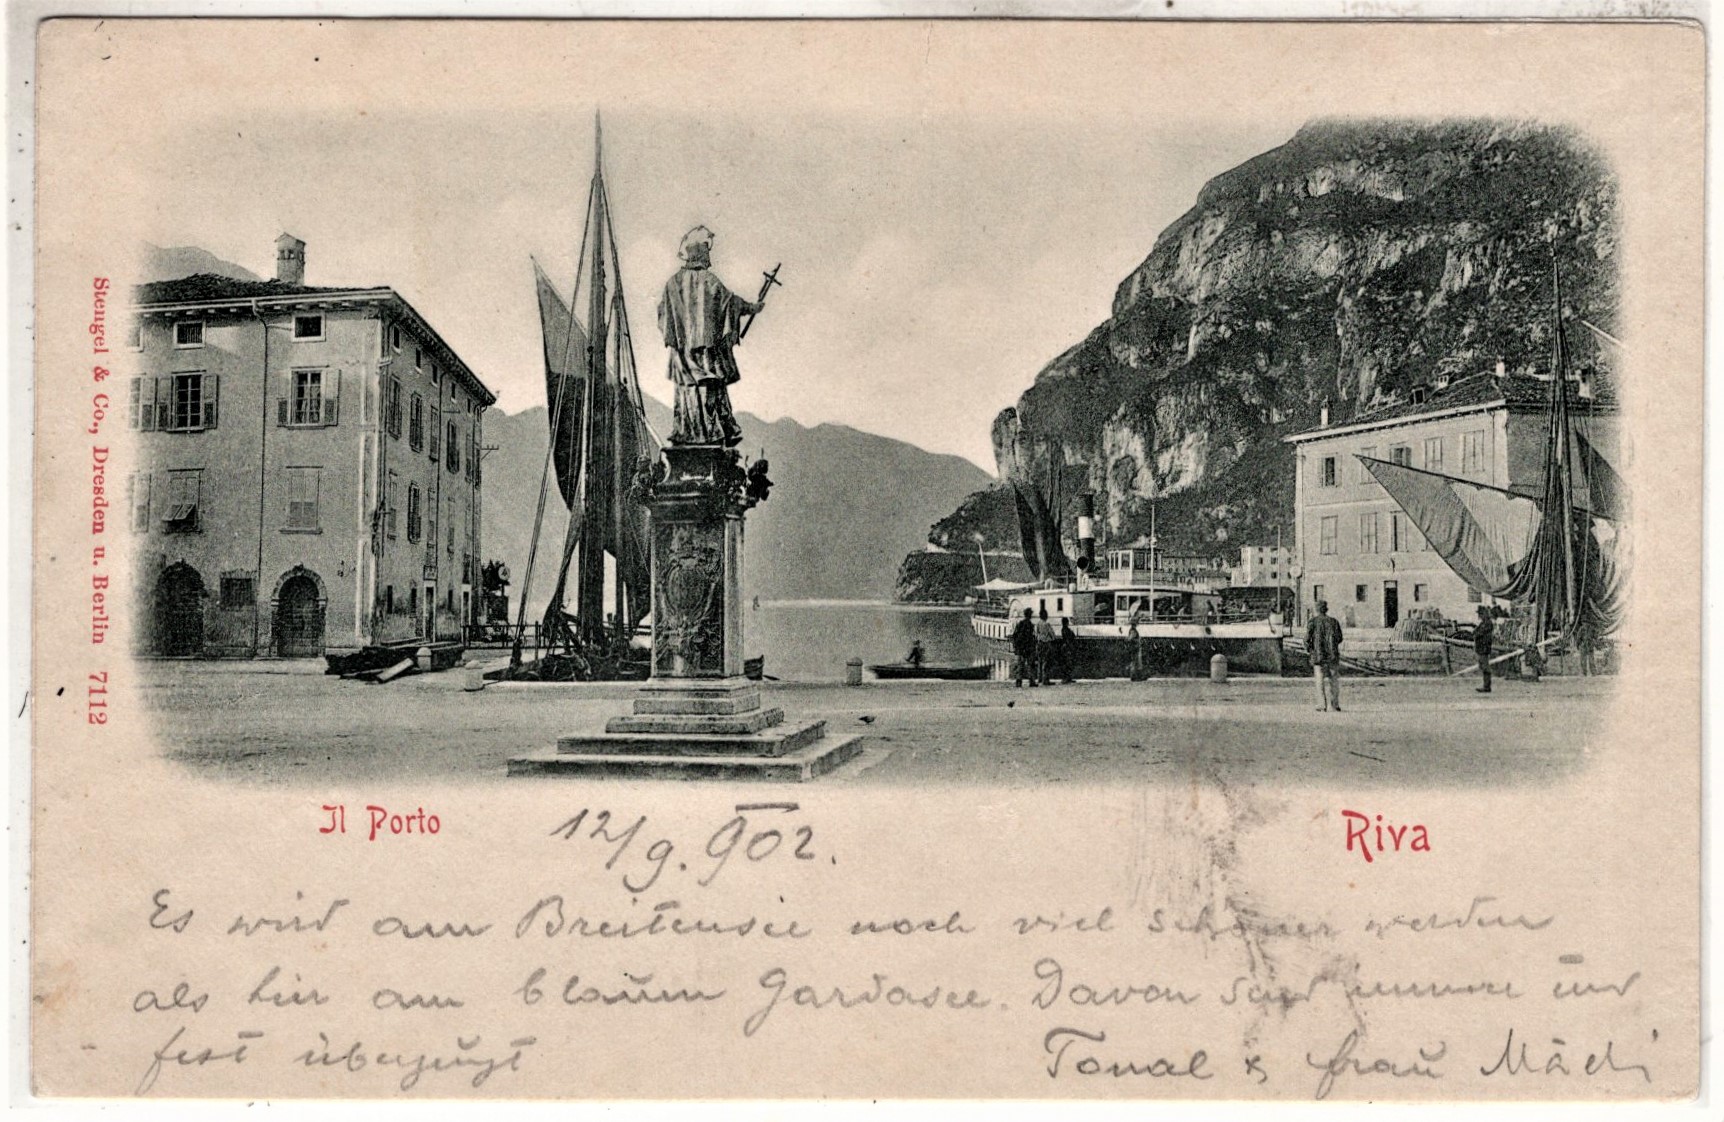 Stengel & Co., Dresden u. Berlin 7112
Il Porto
Riva
12/9. 902.
Es wird am Breitensee noch viel schöner werden
als hier am blauen Gardasee. Davon sind und
fest überzeugt
& Frau